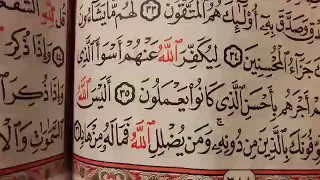 وَصَدَّقَ بِهِۦٓ أُوْلَٰٓئِكَ هُمُ ٱلْمُتَّقُونَ ٣٣ لَهُم مَّا يَشَآءُونَ
جَزَآءُ ٱلْمُحْسِنِينَ ٣٤ لِيُكَفِّرَ ٱللَّهُ عَنْهُمْ أَسْوَأَ ٱلَّذِى
أَجْرَهُم بِأَحْسَنِ ٱلَّذِى كَانُوا۟ يَعْمَلُونَ ٣٥ أَلَيْسَ ٱللَّهُ
بِٱلَّذِينَ مِن دُونِهِۦ ۚ وَمَن يُضْلِلِ ٱللَّهُ فَمَا لَهُۥ مِنْ هَادٍ
وَإِذَا ذُكِرَ